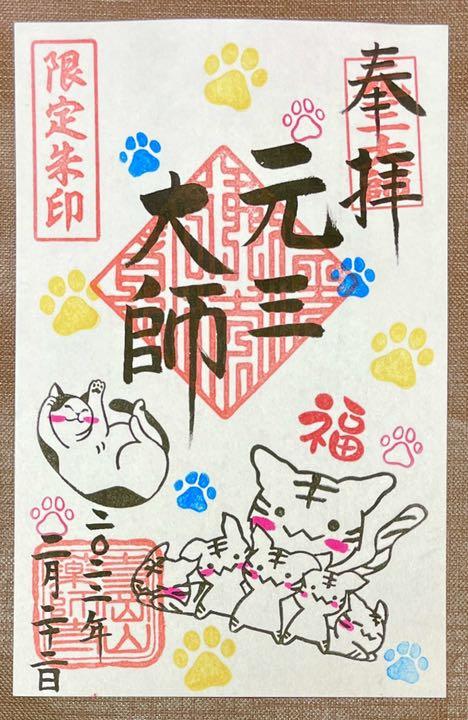 奉拝
元三
大師
限定朱印
福
二〇二二年
二月二十二日